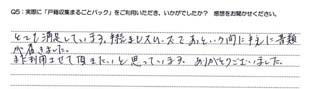 Q5：実際に「戸籍収集まるごとパック」をご利用いただき、いかがでしたか？ 感想をお聞かせください。
とても満足しています。手続きもスムーズであっという間に手元に書類
が届きました。
また利用させて頂きたいと思っています。ありがとうございました。